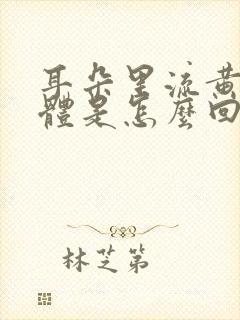 耳朵里流黄
體是怎麼回
林芝第